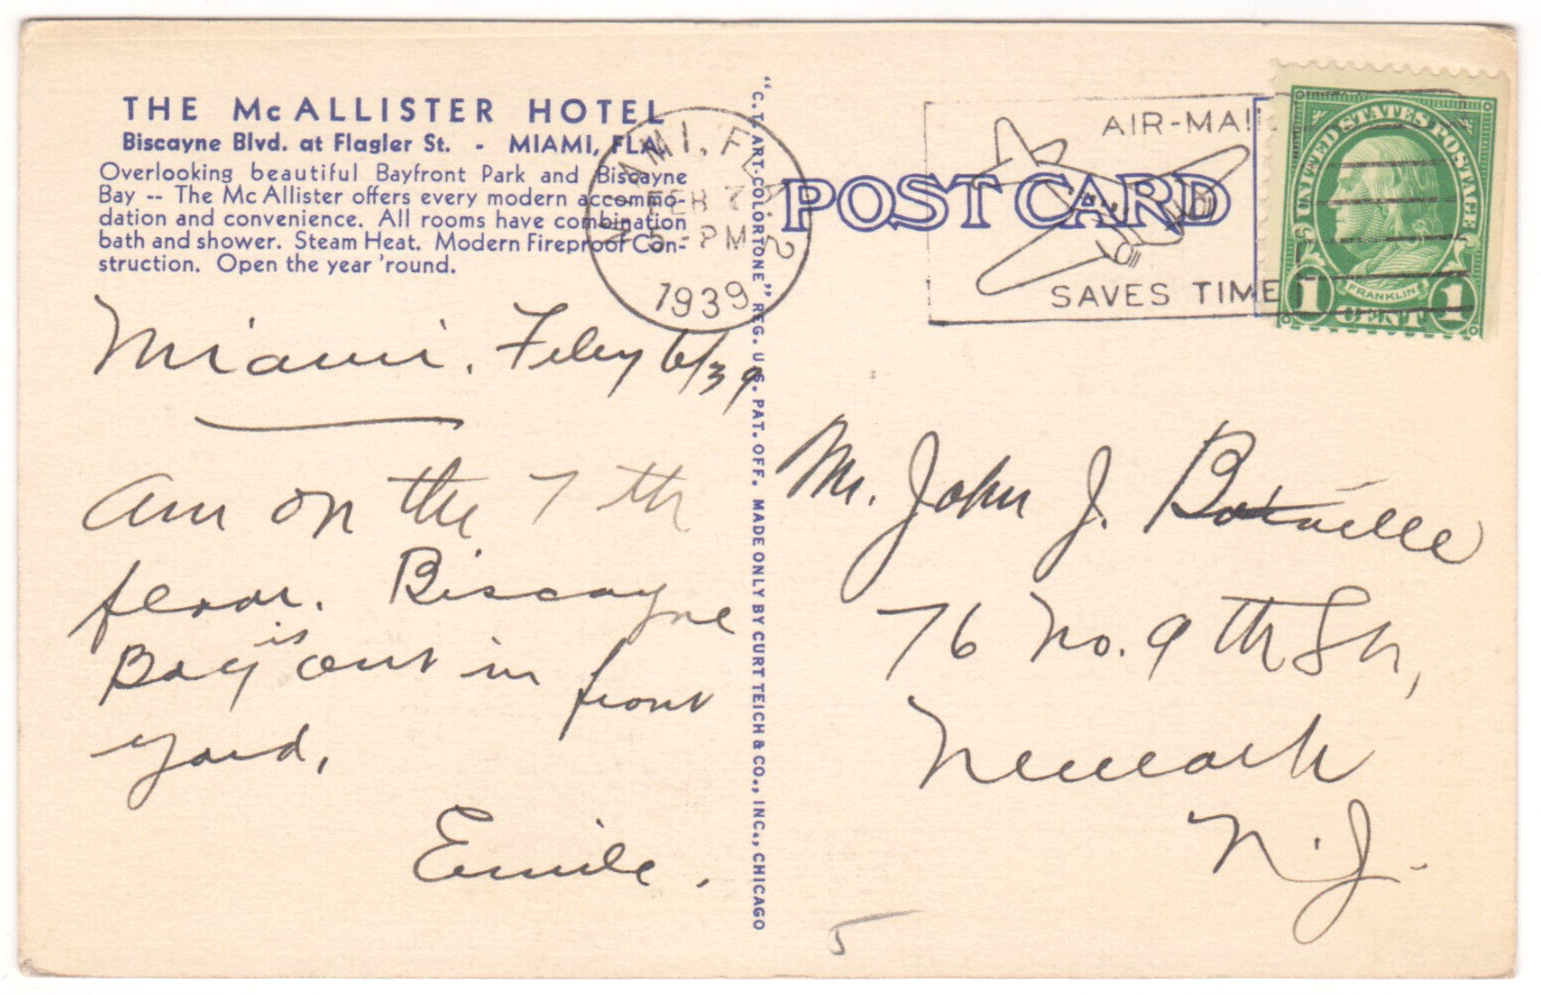 THE McALLISTER HOTEL
Biscayne Blvd. at Flagler St. - MIAMI, FLA.
Overlooking beautiful Bayfront Park and Biscayne
Bay -- The McAllister offers every modern accommo-
dation and convenience. All rooms have combination
bath and shower. Steam Heat. Modern Fireproof Con-
struction. Open the year 'round.
Miami. Feby 6/39
Am on the 7th
floor. Biscayne
Bay is out in front
yard,
Emile.
"C.T. ART-COLORTONE" REG. U.S. PAT. OFF. MADE ONLY BY CURT TEICH & CO., INC., CHICAGO
MIAMI, FLA. 2
FEB 7
5 - PM
1939
POST CARD
AIR-MAIL
SAVES TIME
UNITED STATES POSTAGE
FRANKLIN
1 CENT 1
Mr. John J.
76 No. 9th St,
Newark
N.J.
5